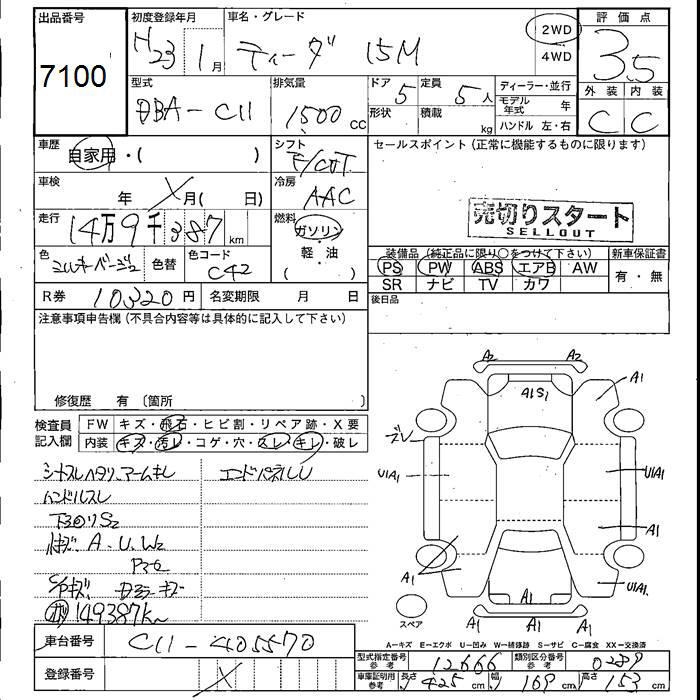 出品番号
7100
初度登録年月
H23 1月
車名・グレード
ティーダ 15M
2WD
4WD
評価点
3.5
型式
DBA-C11
排気量
1500 cc
ドア 5
形状
定員 5人
積載 kg
ディーラー・並行
モデル年式 年
ハンドル 左・右
外装 内装
C C
車歴
自家用・( )
シフト
F/CVT
車検
年 月( 日)
冷房
AAC
走行
14万9千387 km
燃料
ガソリン
(軽・油)
色
色替
色コード
C42
R券 10,320円
名変期限 月 日
セールスポイント(正常に機能するものに限ります)
売切りスタート
SELLOUT
装備品(純正品に限り○をつけて下さい)
PS PW ABS エアB AW
SR ナビ TV カワ
新車保証書
有・無
後日品
注意事項申告欄(不具合内容等は具体的に記入して下さい)
修復歴 有〔箇所
検査員
記入欄
FW キズ・飛石・ヒビ割・リペア跡・X要
内装 キズ・汚レ・コゲ・穴・スレ・キレ・破レ
シートスレ ヘタリ、アームキレ
エンドパネルU
ハンドルスレ
下回りS2
A・U・W2
149387km
A2 A2
A1S1
A1
ズレ
U1A1
U1A1
A1
A1
U1A1
A1
A1 A1
スペア
A=キズ E=エクボ U=凹み W=補修跡 S=サビ C=腐食 XX=交換済
車台番号
C11-405570
登録番号
型式指定番号 参考
12666
類別区分番号 参考
0289
車庫証明用 参考
長さ 425cm
幅 169cm
高さ 153cm